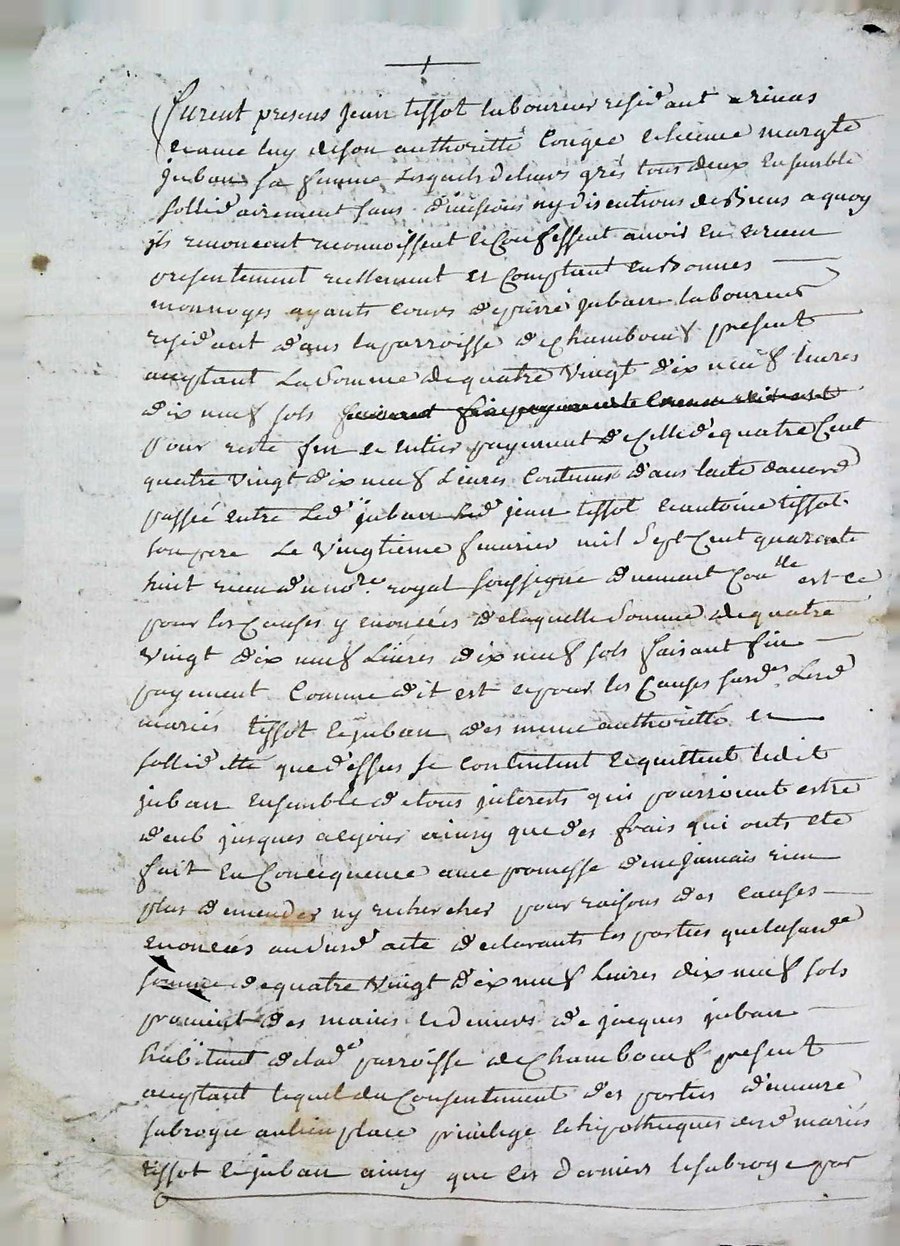 Furent presens jean tissot laboureur residant a rivas
et avec luy de son authoritté Congée et licence margte
juban sa femme lesquels de leurs grés tous deux Ensemble
sollidairement sans divisions ny discutions de Biens a quoy
ils renoncent reconnoissent et Confessent avoir Eu et receu
presentement reellement et Comptant en Bonnes
monnoyes ayants cours de pierre juban laboureur
residant dans la parroisse de Chambœuf present
acceptant La Somme de quatre Vingt dix neuf livres
dix neuf sols
pour reste fin et entier payement de Celle de quatre Cent
quatre Vingt dix neuf Livres Contenue dans lacte daccord
passée entre Led juban led jean tissot et antoine tissot
son pere Le Vingtieme fevrier mil Sept Cent quarante
huit receu du nore royal soussigné duement Conlle et ce
pour les Causes y enoncées de laquelle Somme de quatre
Vingt dix neuf Livres dix neuf sols faisant fin
payement Comme dit est et pour les Causes susd Lesd
mariés tissot et juban des meme authoritté et
sollidité que dessus se contentent et quittent ledit
juban ensemble de tous interests qui pourroient estre
deub jusques a ce jour ainsy que des frais qui onts eté
fait En Consequence avec promesse de ne jamais rien
plus demender ny rechercher pour raisons des causes
enoncées audusd acte declarants les parties que la susde
somme de quatre Vingt dix neuf Livres dix neuf sols
provient des mains et deniers de jacques juban
habitant de lade parroisse de Chambœuf present
acceptant lequel du Consentement des parties demeure
subrogé au lieu place privilege et hipotheques desd mariés
tissot et juban ainsy que ces derniers le subroge par